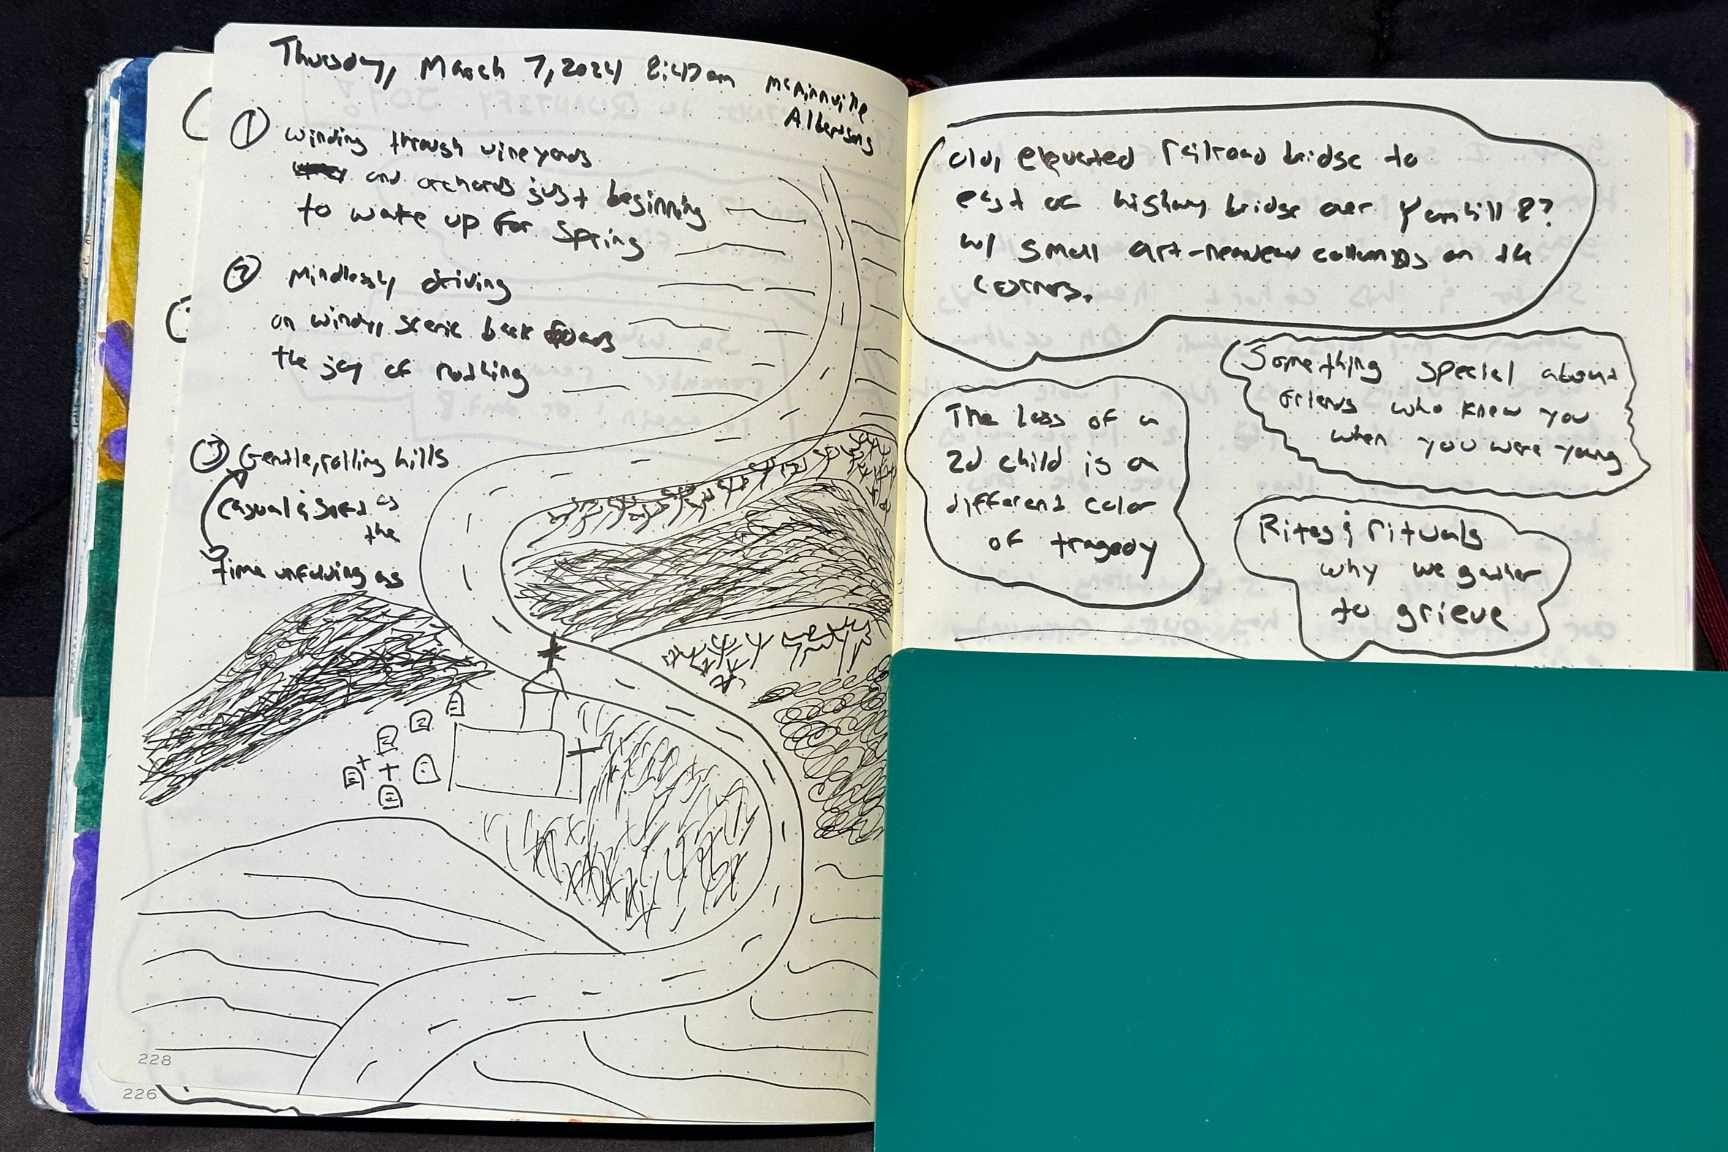 Thursday, March 7, 2024 8:47am McMinnville
Albertsons
① Winding through vineyards
and orchards just beginning
to wake up for Spring
② Mindlessly driving
on windy, scenic back roads
the joy of nothing
③ Gentle, rolling hills
Casual & as
the
time unfolding as
228
226
old, elevated railroad bridge to
east of highway bridge over Yamhill R?
w/ small art-nouveau collumns on the
corners.
Something special about
friends who knew you
when you were young
The loss of a
2d child is a
different color
of tragedy
Rites & rituals
why we gather
to grieve